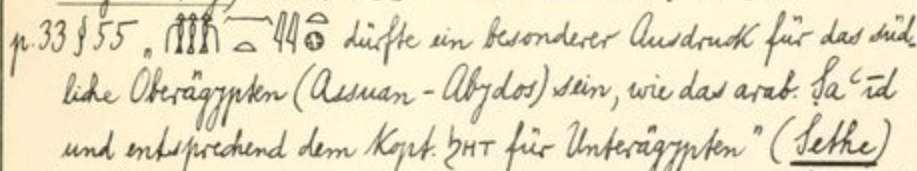 p.33 § 55 „𓏃𓈖𓏏𓇌𓏏𓊖 dürfte ein besonderer Ausdruck für das süd-
liche Oberägypten (Assuan - Abydos) sein, wie das arab. Ṣaʿīd
und entsprechend dem Kopt. ϧⲏⲧ für Unterägypten" (Sethe)